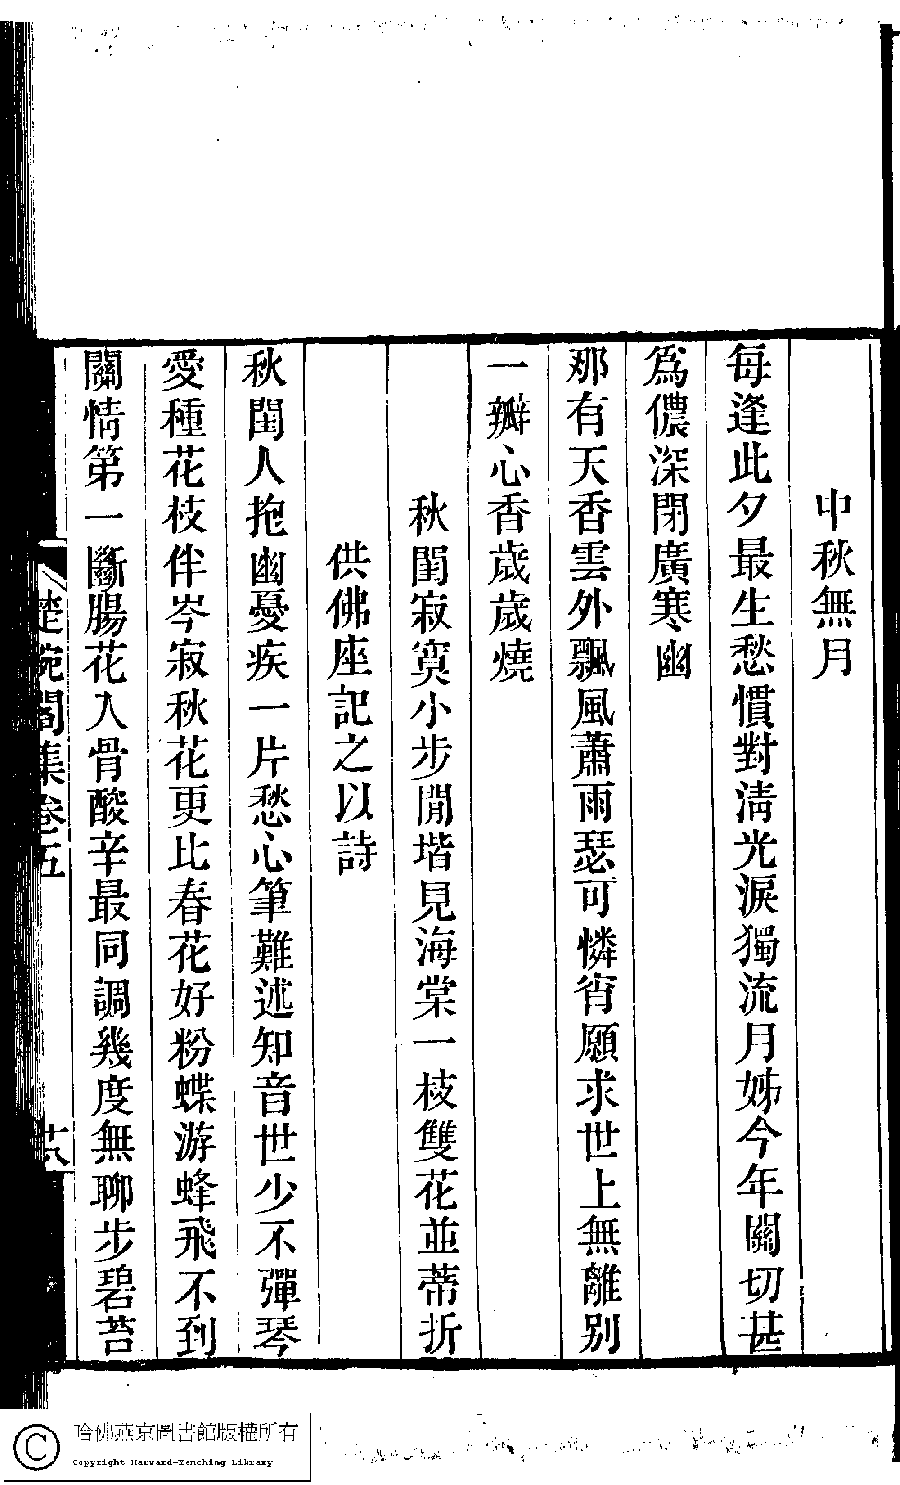 中秋無月
每逢此夕最生愁慣對清光淚獨流月姊今年關切甚
爲儂深閉廣寒幽
那有天香雲外飄風蕭雨瑟可憐宵願求世上無離别
一瓣心香歲歲燒
秋閨寂寞小步閒堦見海棠一枝雙花並蒂折
供佛座記之以詩
秋閨人抱幽憂疾一片愁心筆難述知音世少不彈琴
愛種花枝伴岑寂秋花更比春花好粉蝶游蜂飛不到
關情第一斷腸花入骨酸辛最同調幾度無聊步碧苔
楚畹閣集卷五
十八
哈佛燕京圖書館版權所有
Copyright Harvard-Yenching Library